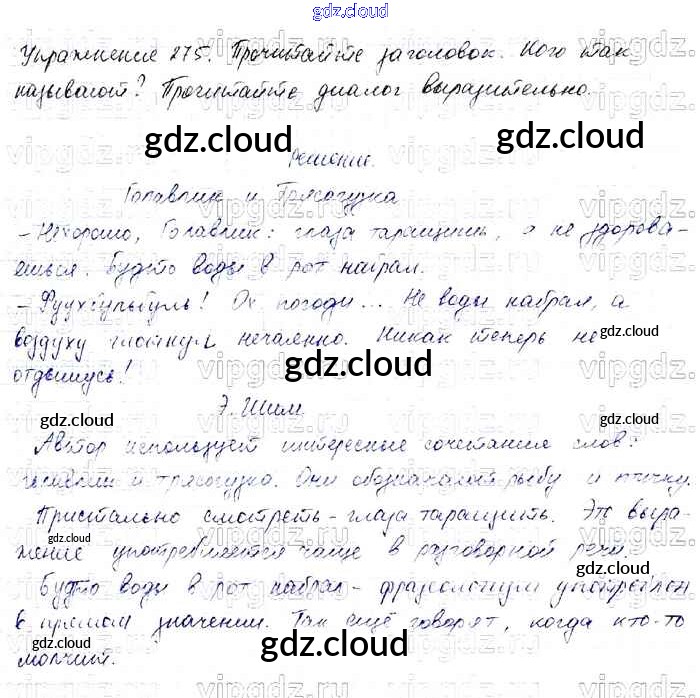 gdz.cloud
Упражнение 275. Прочитайте заголовок. Кого так
называют? Прочитайте диалог выразительно.
gdz.cloud gdz.cloud
Решение.
Голавлик и Трясогузка
- Нехорошо, Голавлик: глаза таращишь, а не здорова-
ешься. Будто воды в рот набрал.
- Фуухбульбуль! Ох погоди... Не воды набрал, а
воздуху глотнул нечаянно. Никак теперь не
gdz.cloud
отдышусь!
gdz.cloud
Э. Шим
gdz.cloud gdz.cloud
Автор использует интересные сочетания слов:
голавлик и трясогузка. Они обозначают рыбу и птичку.
Пристально смотреть - глаза таращить. Это выра-
gdz.cloud
жение употребляется чаще в разговорной речи.
Будто воды в рот набрал - фразеологизм употреблен
в прямом значении. Так ещё говорят, когда кто-то
gdz.cloud gdz.cloud
молчит.
gdz.cloud